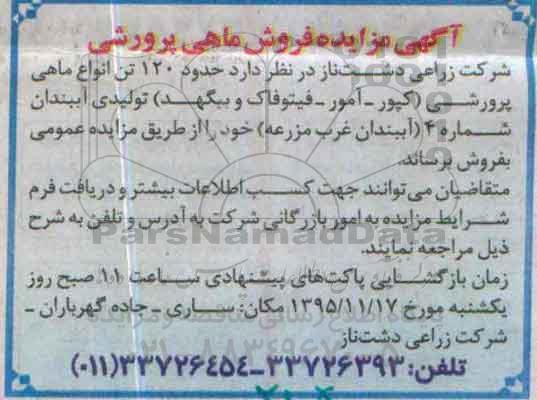 آگهی مزایده فروش ماهی پرورشی
شرکت زراعی دشت‌ناز در نظر دارد حدود ۱۲۰ تن انواع ماهی
پرورشی (کپور ـ آمور ـ فیتوفاک و بیگهد) تولیدی آببندان
شماره ۴ (آببندان غرب مزرعه) خود را از طریق مزایده عمومی
بفروش برساند.
متقاضیان می‌توانند جهت کسب اطلاعات بیشتر و دریافت فرم
شرایط مزایده به امور بازرگانی شرکت به آدرس و تلفن به شرح
ذیل مراجعه نمایند.
زمان بازگشایی پاکت‌های پیشنهادی ساعت ۱۱ صبح روز
یکشنبه مورخ ۱۳۹۵/۱۱/۱۷ مکان: ساری ـ جاده گهرباران ـ
شرکت زراعی دشت‌ناز
تلفن: ۳۳۷۲۶۳۹۳-۳۳۷۲۶۴۵۴(۰۱۱)
ParsNamadData